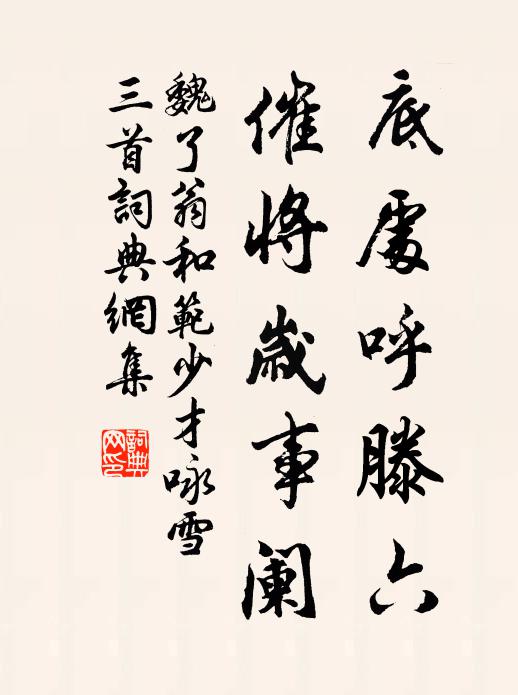 底處呼滕六
催將歲事闌
魏了翁和範少才咏雪
三首詞典網集
詞典
网印